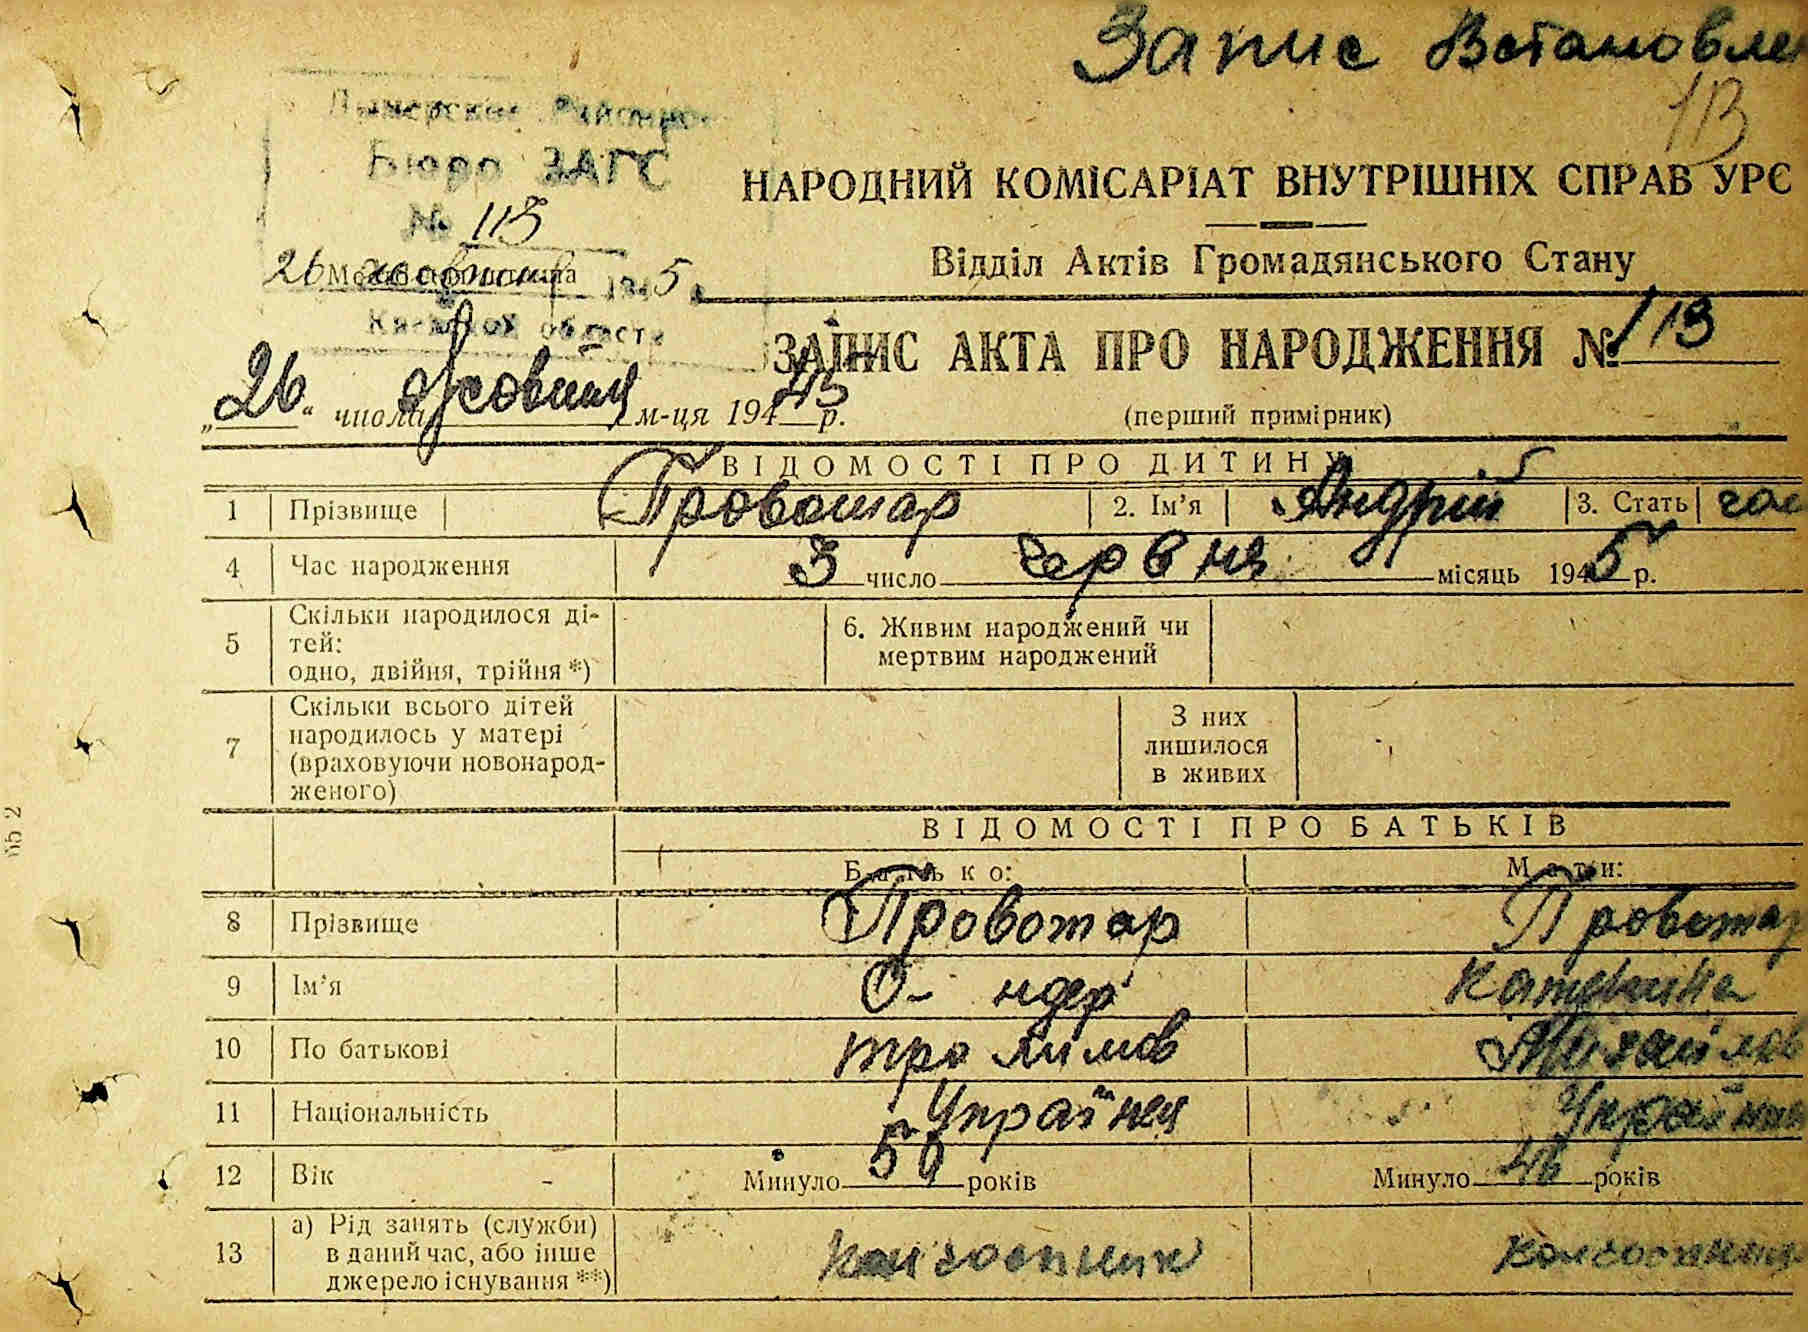 Запис Встановле
113
Дымерское Районное
Бюро ЗАГС
№ 113
НАРОДНИЙ КОМІСАРІАТ ВНУТРІШНІХ СПРАВ УРЄ
Відділ Актів Громадянського Стану
26 жовтня 1945
Киевской области
ЗАПИС АКТА ПРО НАРОДЖЕННЯ № 113
„26“ числа жовтня м-ця 1945 р.
(перший примірник)
ВІДОМОСТІ ПРО ДИТИНУ
1 Прізвище Провотар 2. Ім’я Андрій 3. Стать чол
4 Час народження 3 число червня місяць 1945 р.
5 Скільки народилося ді-
тей:
одно, двійня, трійня *)
6. Живим народжений чи
мертвим народжений
7 Скільки всього дітей
народилось у матері
(враховуючи новонарод-
женого)
З них
лишилося
в живих
ВІДОМОСТІ ПРО БАТЬКІВ
Батько: Мати:
8 Прізвище Провотар Провотар
9 Ім’я Катерина
10 По батькові Михайлов
11 Національність Українец Українка
12 Вік Минуло 50 років Минуло 46 років
13 а) Рід занять (служби)
в даний час, або інше
джерело існування **)
колгоспник колгоспниц